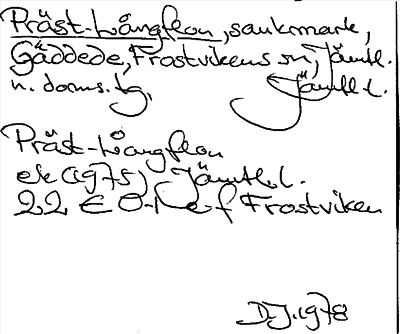 Präst-Långflon, sankmark,
Gäddede, Frostvikens sn, Jämtl.
n. doms. tg, Jämtl. l.
Präst-Långflon
ek (1975) Jämtl. l.
22 E 0-1 e-f Frostviken
D.J. 1978